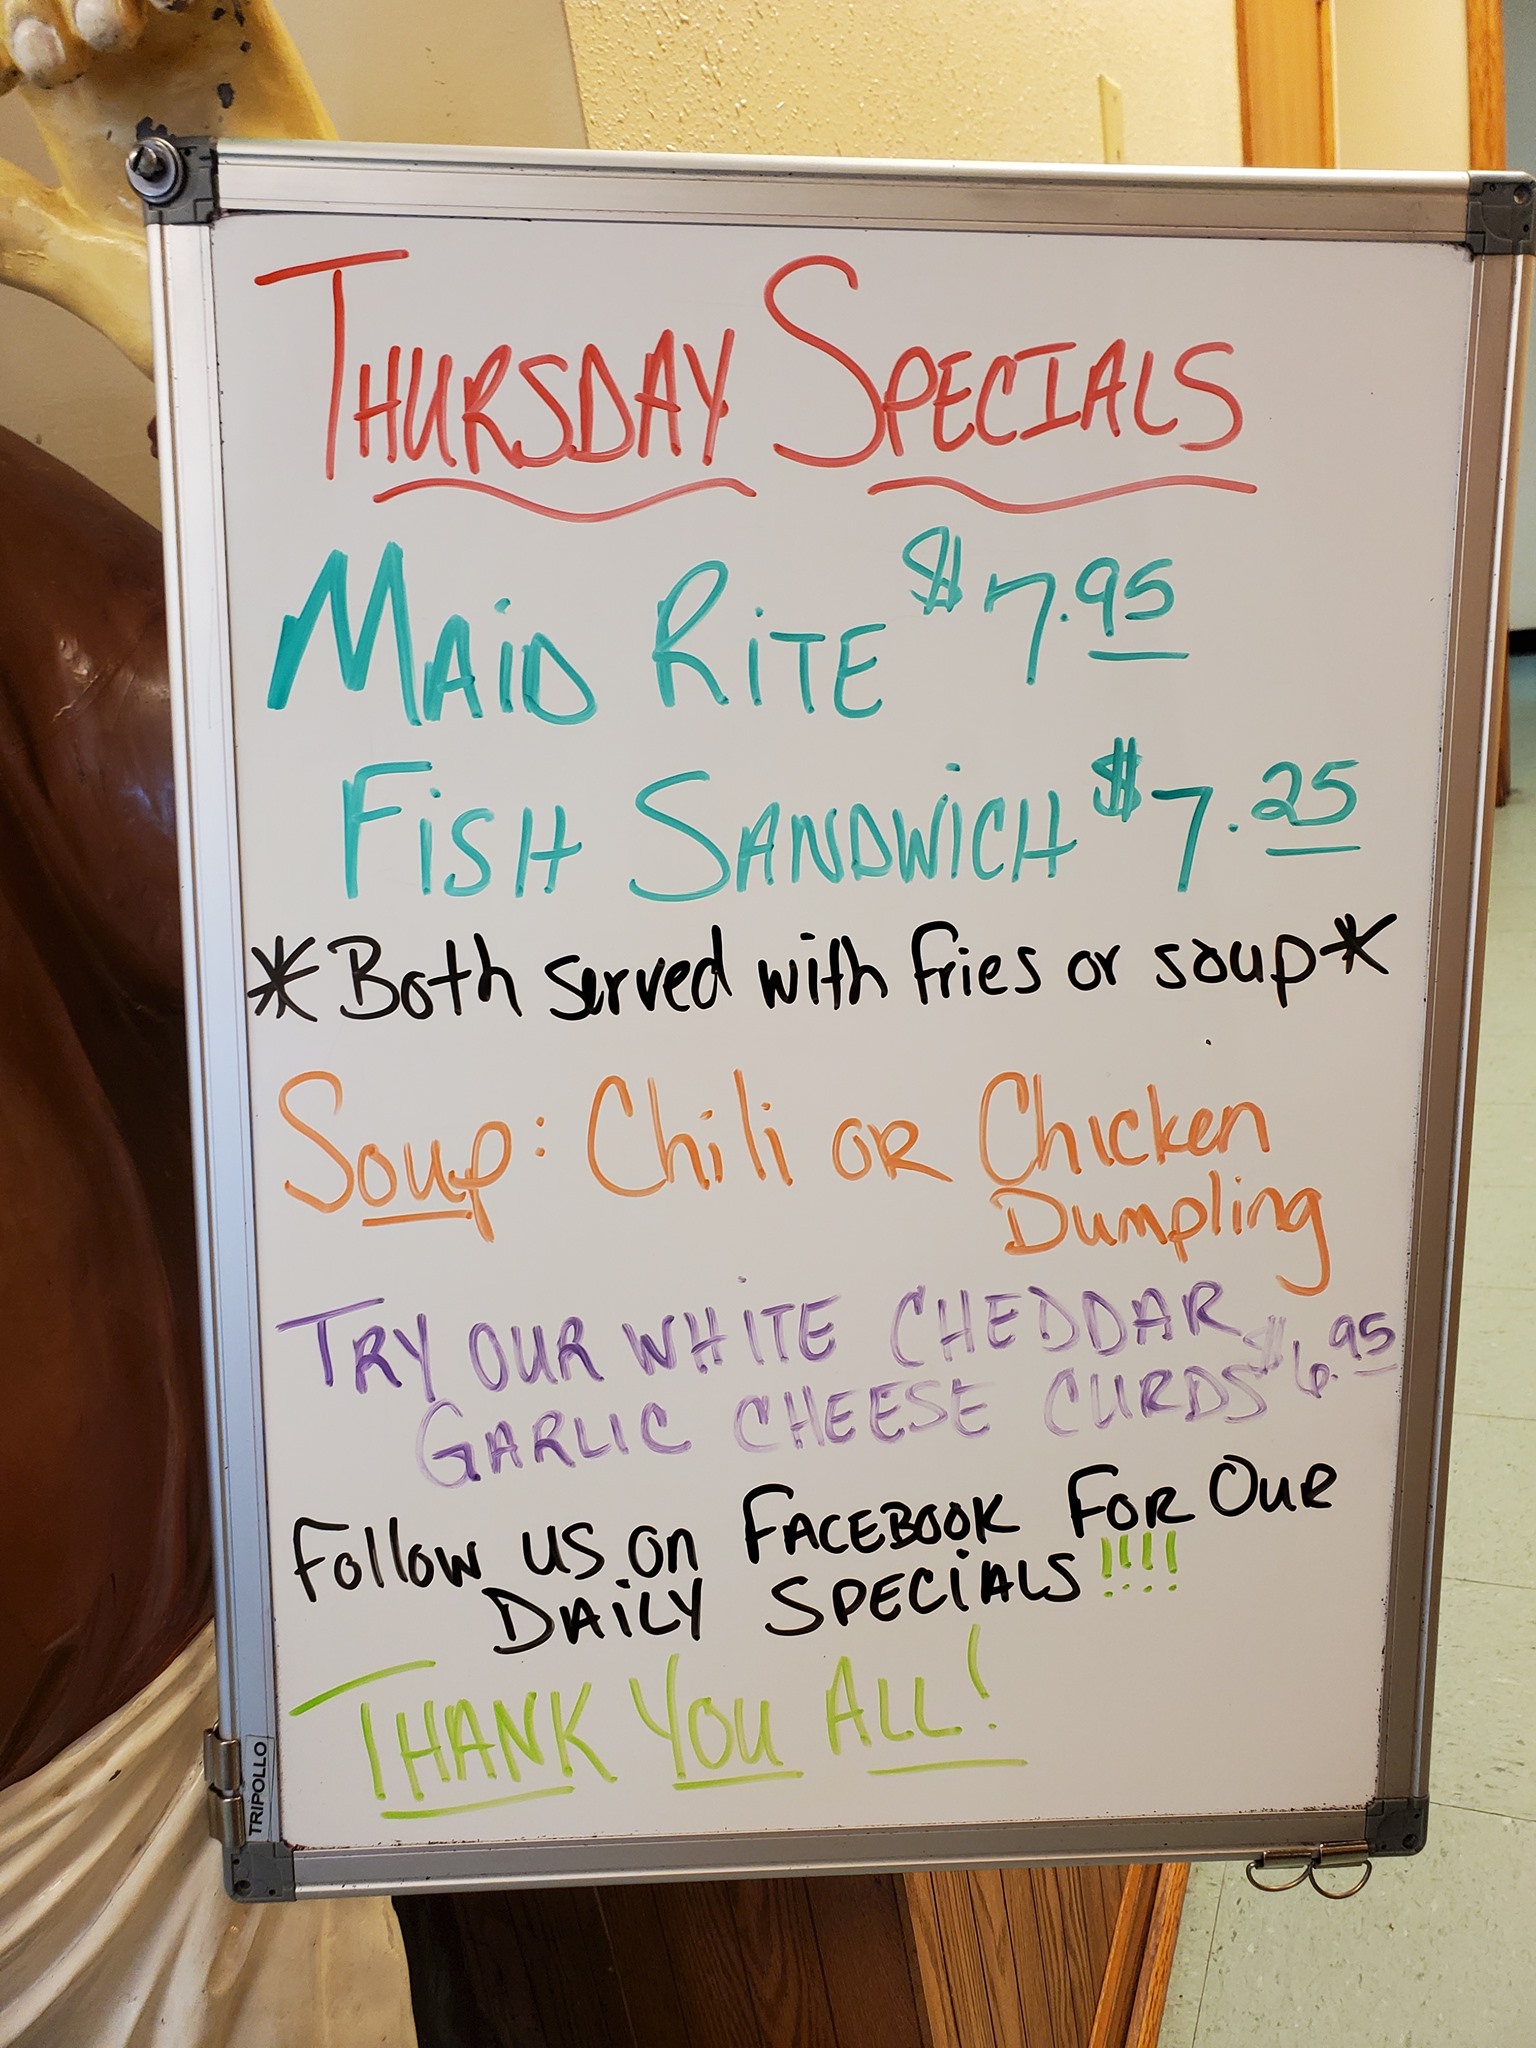 THURSDAY SPECIALS
MAiD RiTE $7.95
FiSH SANDWiCH $7.25
*Both served with fries or soup*
Soup: Chili OR Chicken
Dumpling
TRY OUR WHITE CHEDDAR
GARLIC CHEESE CURDS $6.95
Follow us on FACEBOOK FOR OUR
DAiLY SPECiALS!!!!
THANK YOU ALL!
TRIPOLLO